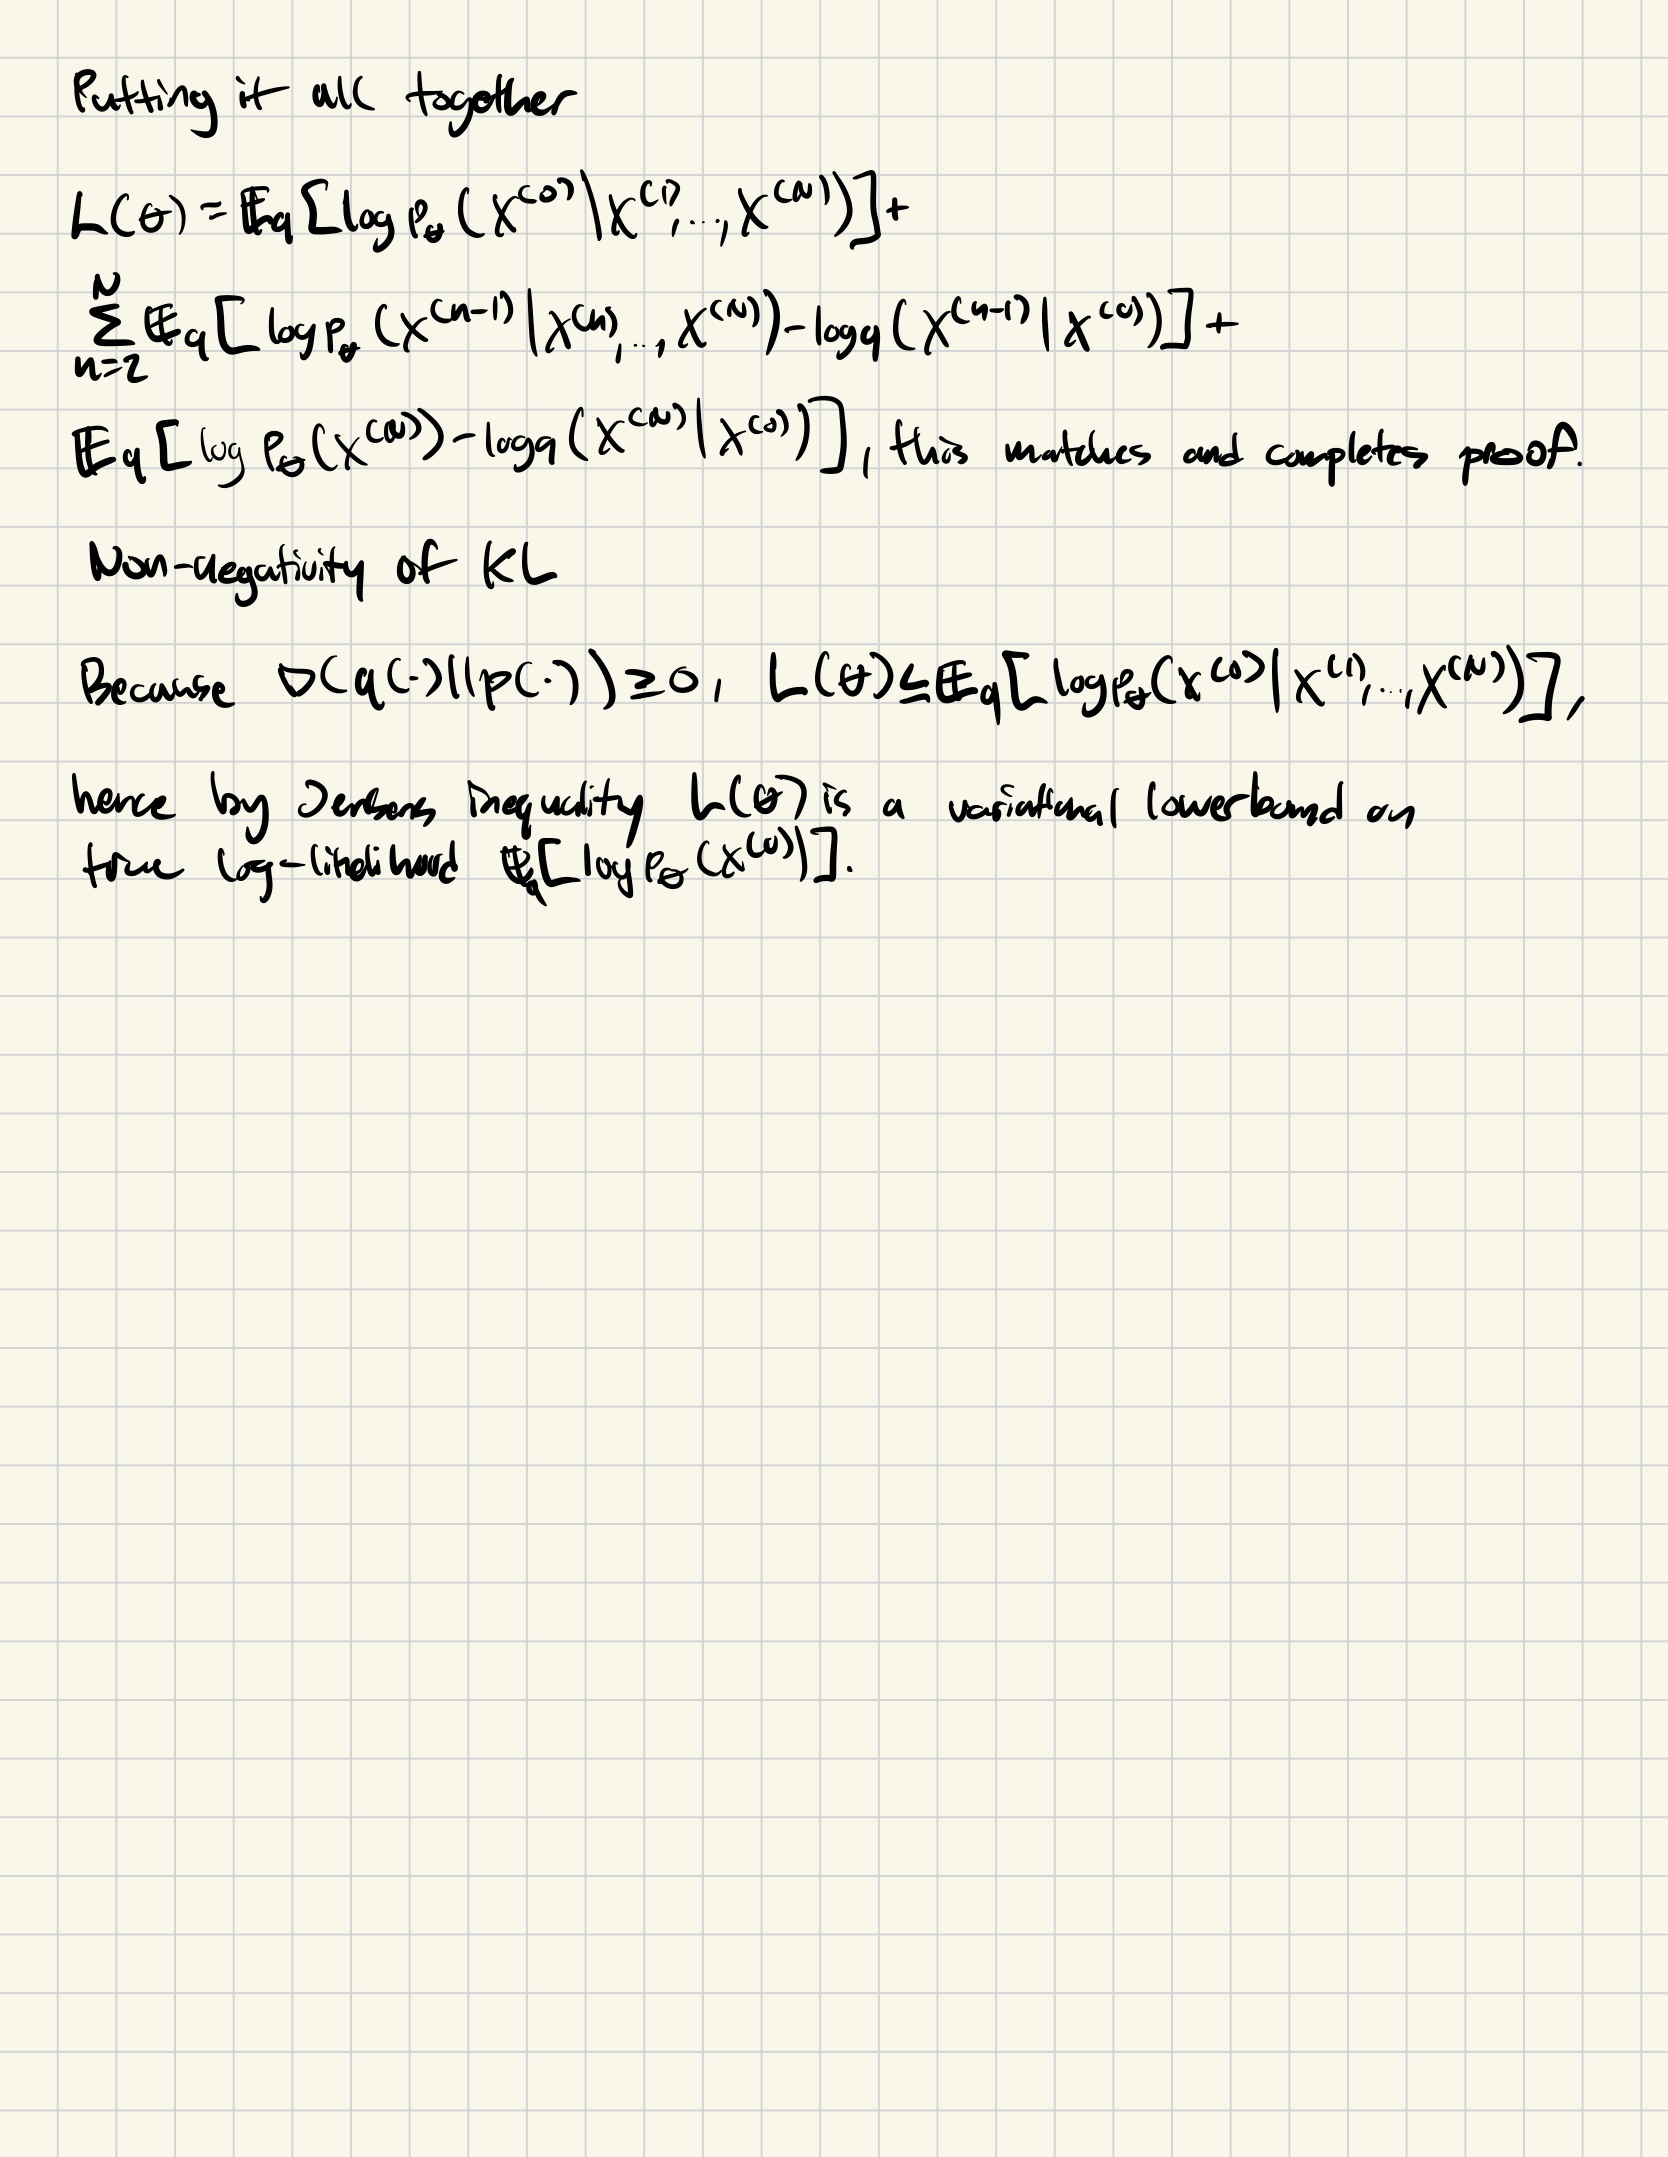 Putting it all together
L(θ) = 𝔼q[log pθ(x^(0)|x^(1),...,x^(N))] +
∑_{n=2}^{N} 𝔼q[log pθ(x^(n-1)|x^(n),...,x^(N)) - log q(x^(n-1)|x^(0))] +
𝔼q[log pθ(x^(N)) - log q(x^(N)|x^(0))], this matches and completes proof.
Non-negativity of KL
Because D(q(·)||p(·)) ≥ 0, L(θ) ≤ 𝔼q[log pθ(x^(0)|x^(1),...,x^(N))],
hence by Jensens inequality L(θ) is a variational lowerbound on
true log-likelihood 𝔼q[log pθ(x^(0))].